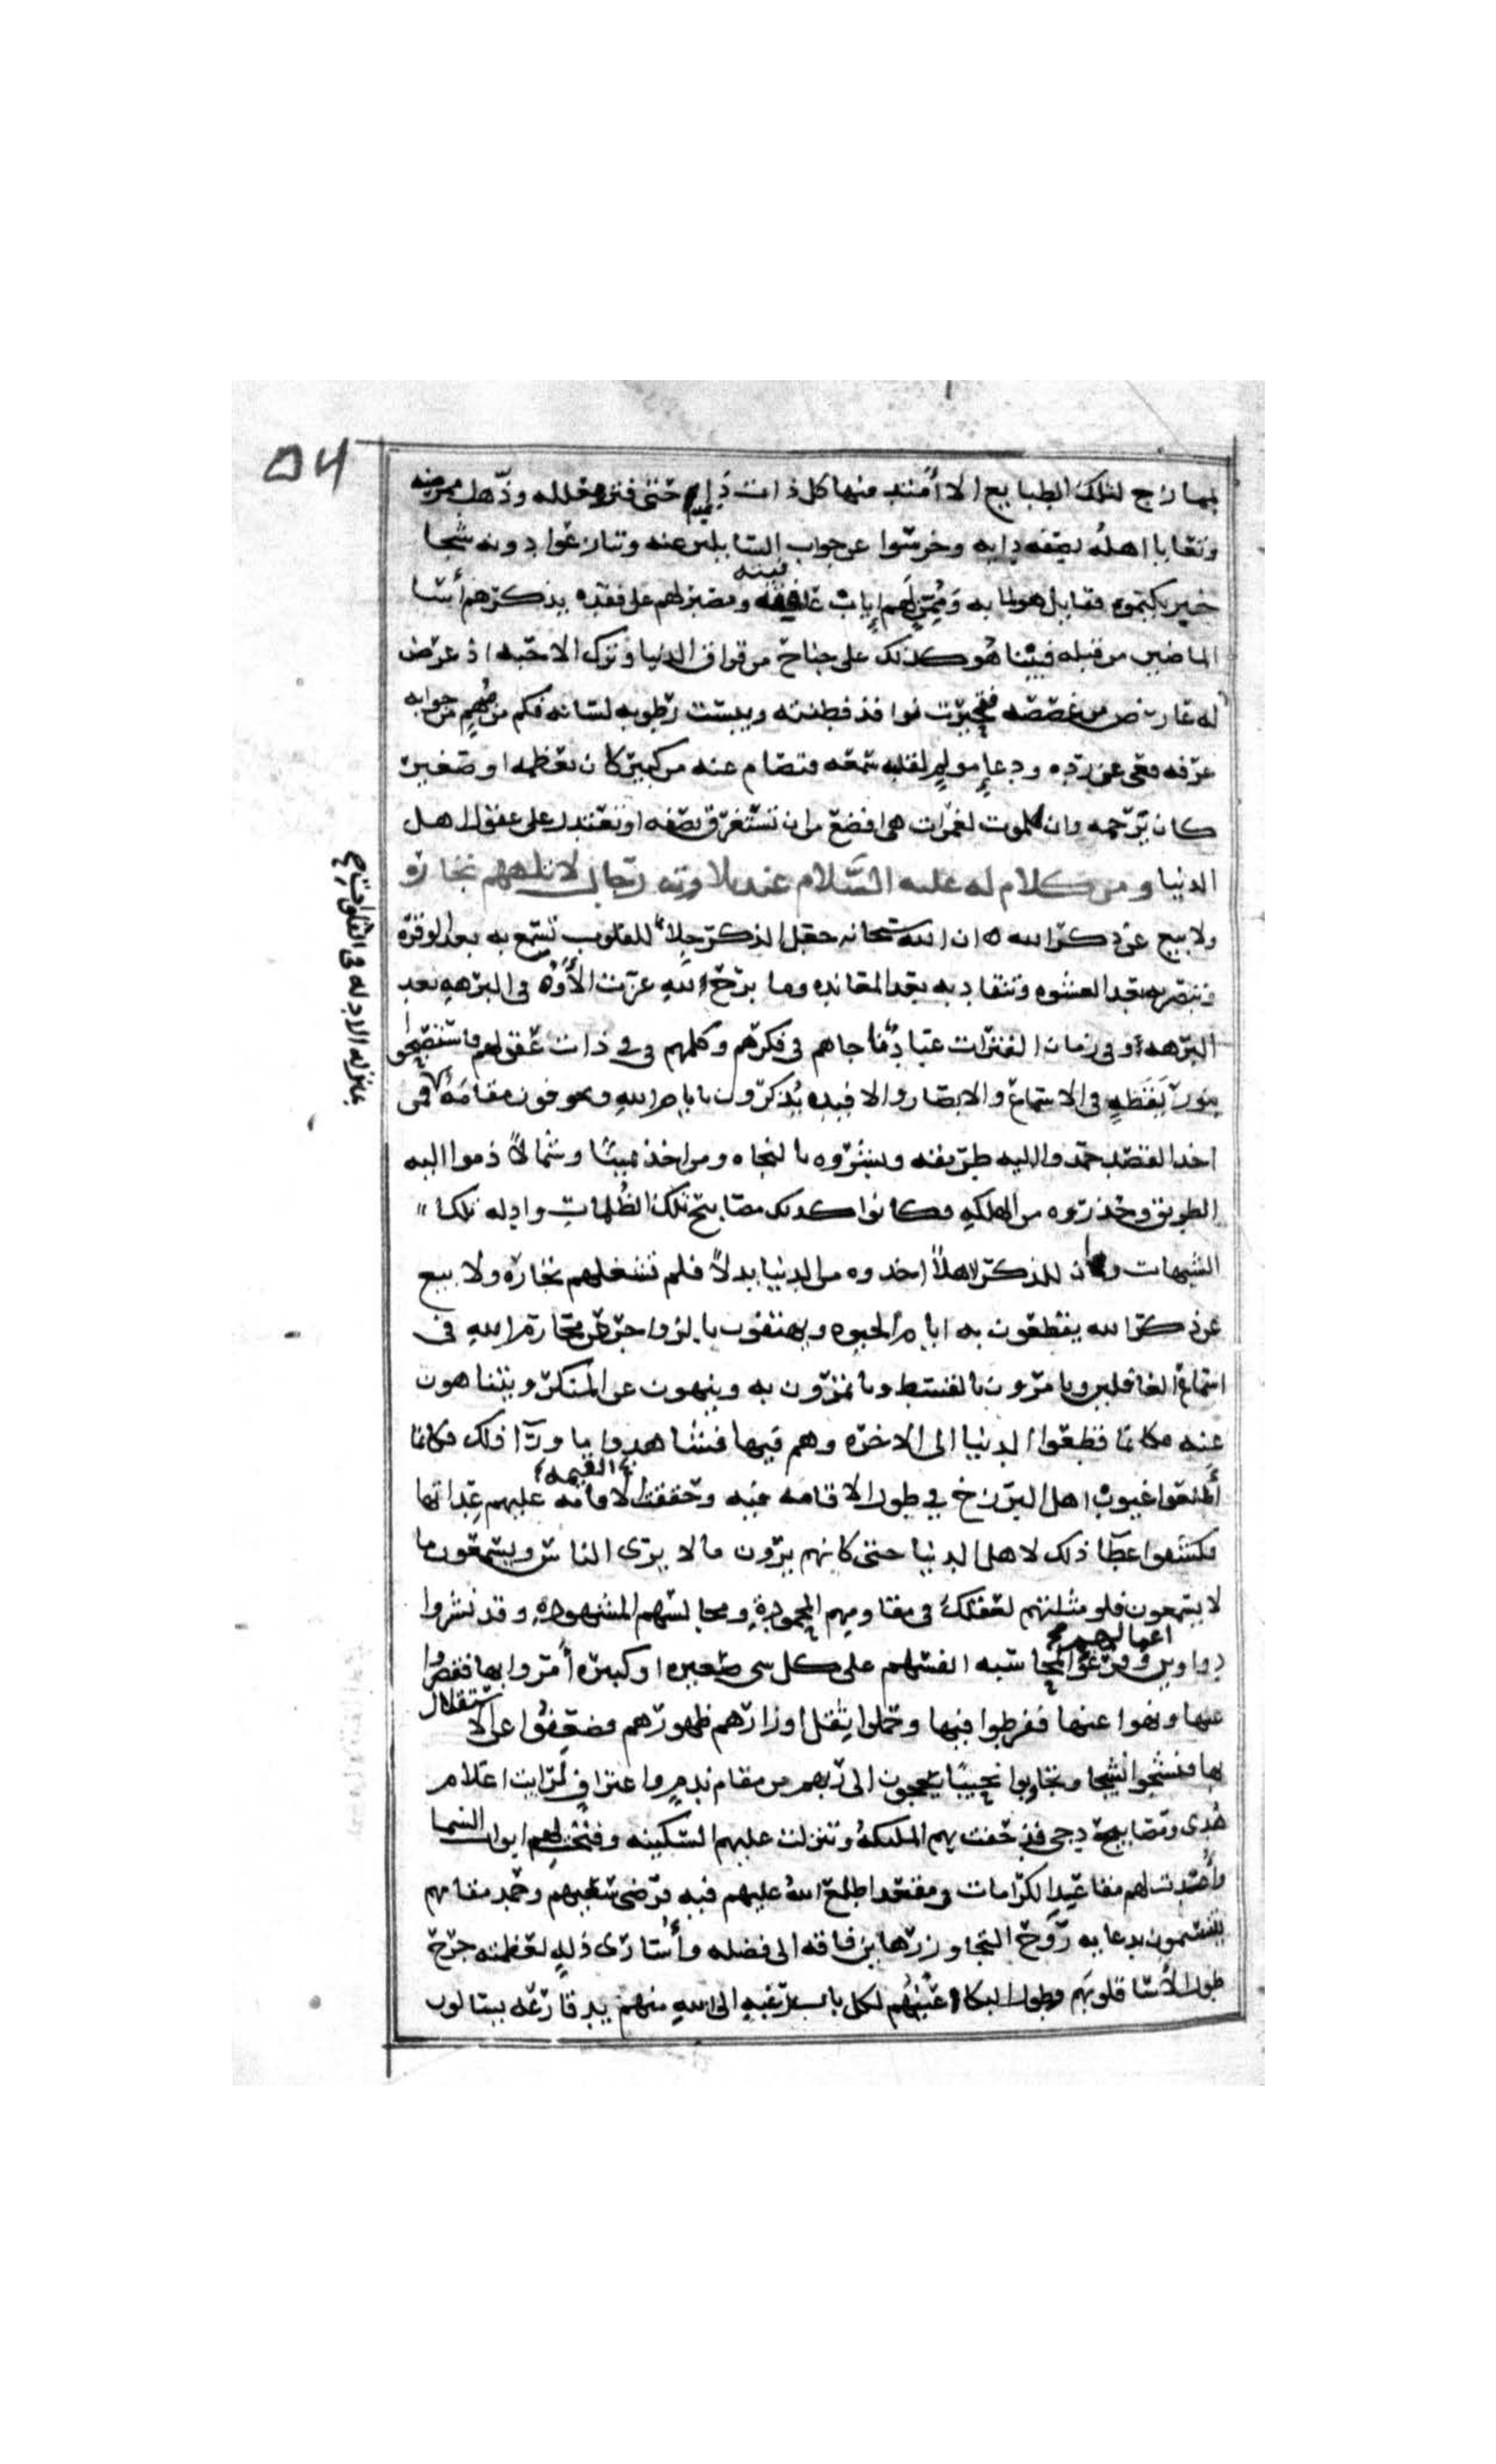 ٥٤
بممازج لتلك الطبايع الا أمَدّ منها كل ذات دإ حتى فتر معلله وذهل ممرضه
وتعايا اهله بصفه دايه وخرسوا عن جواب السايلين عنه وتنازعوا دونه شجا
خبر يكتمونه فقايل هو لما به وممنٍّ لهم إياب عافيته ومصبر لهم على فقده يذكرهم أسا
الماضين من قبله فبينا هو كذلك على جناح من فراق الدنيا وترك الاحبه اذ عرض
له عارض من غصصه فتحيرت نوافذ فطنته ويبست رطوبه لسانه فكم من مهم من جوابه
عرفه فعى عن رده ودعإ مولم لقلبه سمعه فتصام عنه من كبير كان يعظمه او صغير
كان يرحمه وان للموت لغمرات هي افضع من ان تستغرق بصفه او تعتدل على عقول اهل
الدنيا ومن كلام له عليه السلام عند تلاوته رجال لا تلهيهم تجارة
ولا بيع عن ذكر الله ه ان الله سبحانه جعل الذكر جلاء للقلوب تسمع به بعد الوقره
وتبصر به بعد العشوه وتنقاد به بعد المعانده وما برح لله عزت الآوه في البرهه بعد
البرهه وفي زمان الفترات عباد ناجاهم في فكرهم وكلمهم في ذات عقولهم فاستصبحوا
بنور يقظه في الاسماع والابصار والافيده يذكرون بايام الله ويخوفون مقامه فمن
اخذ القصد حمدوا اليه طريقه وبشروه بالنجاه ومن اخذ يمينا وشمالاً ذموا اليه
الطريق وحذروه من الهلكه فكانوا كذلك مصابيح تلك الظلمات وادله تلك
الشبهات وان للذكر لاهلاً اخذوه من الدنيا بدلاً فلم تشغلهم تجاره ولا بيع
عن ذكر الله يقطعون به ايام الحيوه ويهتفون بالزواجر عن محارم الله في
اسماع الغافلين ويامرون بالقسط وياتمرون به وينهون عن المنكر ويتناهون
عنه فكانما قطعوا الدنيا الى الاخره وهم فيها فشاهدوا ما ورآ ذلك فكانما
أطلعوا غيوب اهل البرزخ في طول الاقامه فيه وحققت القيمه عليهم عداتها
فكشفوا غطآ ذلك لاهل الدنيا حتى كانهم يرون ما لا يرى الناس ويسمعون ما
لا يسمعون فلو مثلتهم لعقلك في مقاومهم المحمودة ومجالسهم المشهوده وقد نشروا
دواوين اعمالهم وفرغوا لمحاسبه انفسهم على كل صغيره او كبيره أمروا بها فقصروا
عنها ونهوا عنها ففرطوا فيها وحملوا ثقل اوزارهم ظهورهم فضعفوا عن الاستقلال
بها فنشجوا نشيجا وتجاوبوا نحيبًا يعجون الى ربهم من مقام ندم واعتراف لرايت اعلام
هُدى ومصابيح دجى قد حفت بهم المليكه وتنزلت عليهم السكينه وفتحت لهم ابواب السما
وأعدت لهم مقاعد الكرامات في مقعد اطلع الله عليهم فيه فرضى سعيهم وحمد مقامهم
يتنسمون بدعايه روح التجاوز رهاين فاقه الى فضله وأُسارى ذله لعظمته جرح
طول الأسا قلوبهم وطول البكا عيونهم لكل باب رغبه الى الله منهم يد قارعه يسالون